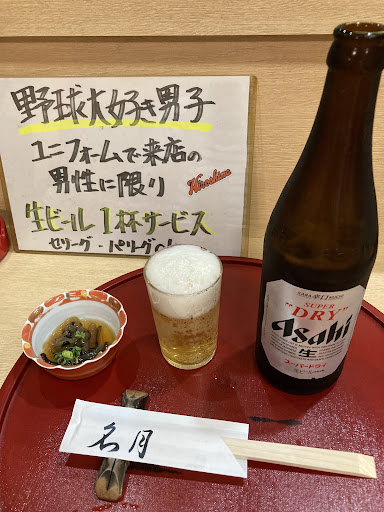 野球大好き男子
ユニフォームで来店の
男性に限り
Hiroshima
生ビール1杯サービス
セリーグ・パリーグOK
ASAHI 辛口 BEER
"SUPER
DRY"
Asahi
生
スーパードライ
生ビール
名月